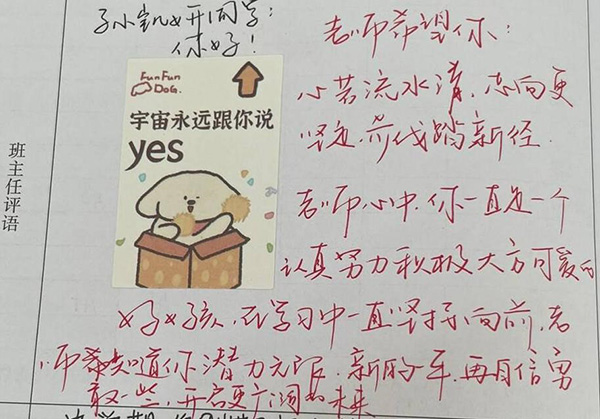 班主任评语
孙小凯开同学:
你好!
FunFun
DOG.
宇宙永远跟你说
yes
老师希望你:
心若流水清,志向更
坚定,奋伐踏新径.
老师心中,你一直是一个
认真努力积极大方可爱的
好女孩,在学习中一直坚持向前,老
师知道你潜力无限,新的年,再自信勇
敢一些,开启更广阔的未来